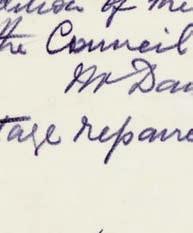 of the
the Council
Mr Dav
tage repaire